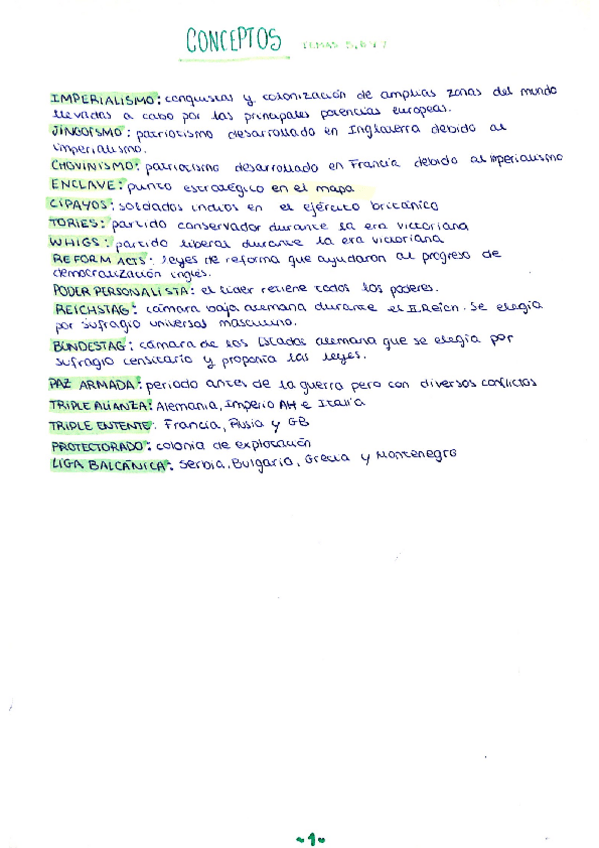 CONCEPTOS TEMAS 5, 6 Y 7
IMPERIALISMO: conquistas y colonización de amplias zonas del mundo
llevadas a cabo por las principales potencias europeas.
JINGOÍSMO: patriotismo desarrollado en Inglaterra debido al
imperialismo.
CHOVINISMO: patriotismo desarrollado en Francia debido al imperialismo
ENCLAVE: punto estratégico en el mapa
CIPAYOS: soldados indios en el ejército británico
TORIES: partido conservador durante la era victoriana
WHIGS: partido liberal durante la era victoriana
REFORM ACTS: leyes de reforma que ayudaron al progreso de
democratización inglés.
PODER PERSONALISTA: el líder retiene todos los poderes.
REICHSTAG: cámara baja alemana durante el II Reich. Se elegía
por sufragio universal masculino.
BUNDESTAG: cámara de los Estados alemana que se elegía por
sufragio censitario y proponía las leyes.
PAZ ARMADA: periodo antes de la guerra pero con diversos conflictos
TRIPLE ALIANZA: Alemania, Imperio AH e Italia
TRIPLE ENTENTE: Francia, Rusia y GB
PROTECTORADO: colonia de explotación
LIGA BALCÁNICA: Serbia, Bulgaria, Grecia y Montenegro
~1~